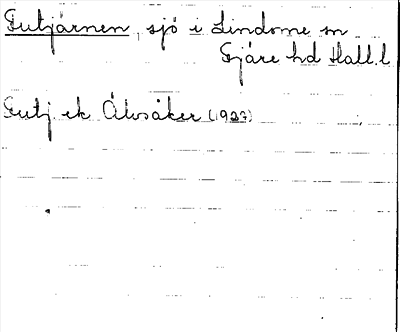 Gutjärnen, sjö i Lindome sn
Fjäre hd Hall.l
Gutj ek Álvsåker (1927)